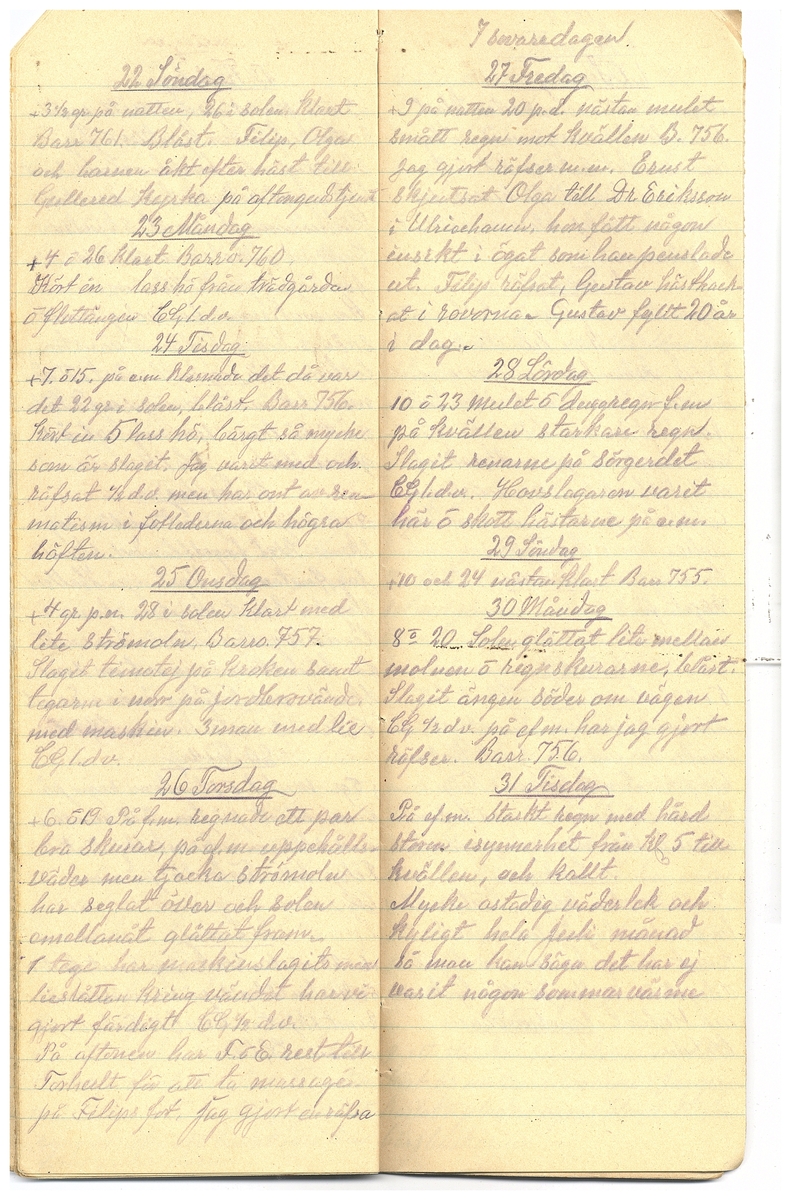 22 Söndag
+3 1/2 gr. på natten, 26 i solen. Klart
Barr 761. Blåst. Filip, Olga
och barnen åkt efter häst till
Gullered Kyrka på aftongudstjenst
23 Måndag
+4 ō 26 Klart Barro. 760.
Kört in lass hö från trädgården
ō Slottängen CG 1 d.v.
24 Tisdag
+7. ō 15. på e.m klarnade det då var
det 22 gr. i solen, blåst. Barr 756.
Kört in 5 lass hö, bärgt så mycke
som är slagit. Jag varit med och
räfsat 1/2 d.v. men har ont av reu-
matism i fotlederna och högra
höften.
25 Onsdag
+4 gr. p.n. 28 i solen Klart med
lite strömoln, Barro. 757.
Slagit timotej på kroken samt
tegarm i norr på
med maskin. 3 man med lie
CG 1. d.v.
26 Torsdag
+6. ō 19 På f.m. regnade ett par
bra skurar, på e.f.m. uppehålls-
väder men tjocka strömoln
har seglat över och solen
emellanåt glättat fram.
1 tege har maskinslagits men
lieslåtten kring vändet har vi
gjort färdigt CG 1/2 d.v.
På aftonen har F. ō E. rest till
Torhult för att ta massage
på Filips fot. Jag gjort en räfsa
7 sovaredagen.
27 Fredag
+9 på natten 20 p.d. nästan mulet
smått regn mot kvällen B. 756.
Jag gjort räfser m.m. Ernst
skjutsat Olga till Dr Eriksson
i Ulricehamn, hon fått någon
insekt i ögat som han penslade
ut. Filip räfsat, Gustav hästhack-
at i rovorna. Gustav fyllt 20 år
i dag.
28 Lördag
10 ō 23 Mulet ō duggregn f.m
på kvällen starkare regn.
Slagit renarne på sörgerdet
CG 1. d.v. Hovslagaren varit
här ō skott hästarne på e.m.
29 Söndag
+10 och 24 nästan klart Barr 755.
30 Måndag
8 ō 20 Solen glättat lite mellan
molnen ō regnskurarne, blåst.
Slagit ängen söder om vägen
CG 1/2 d.v. på ef.m. har jag gjort
räfser. Barr. 756.
31 Tisdag
På ef.m. starkt regn med hård
storm isynnerhet från Kl 5 till
kvällen, och kallt.
Mycke ostadig väderlek och
kyligt hela Juli månad
så man kan säga det har ej
varit någon sommarvärme